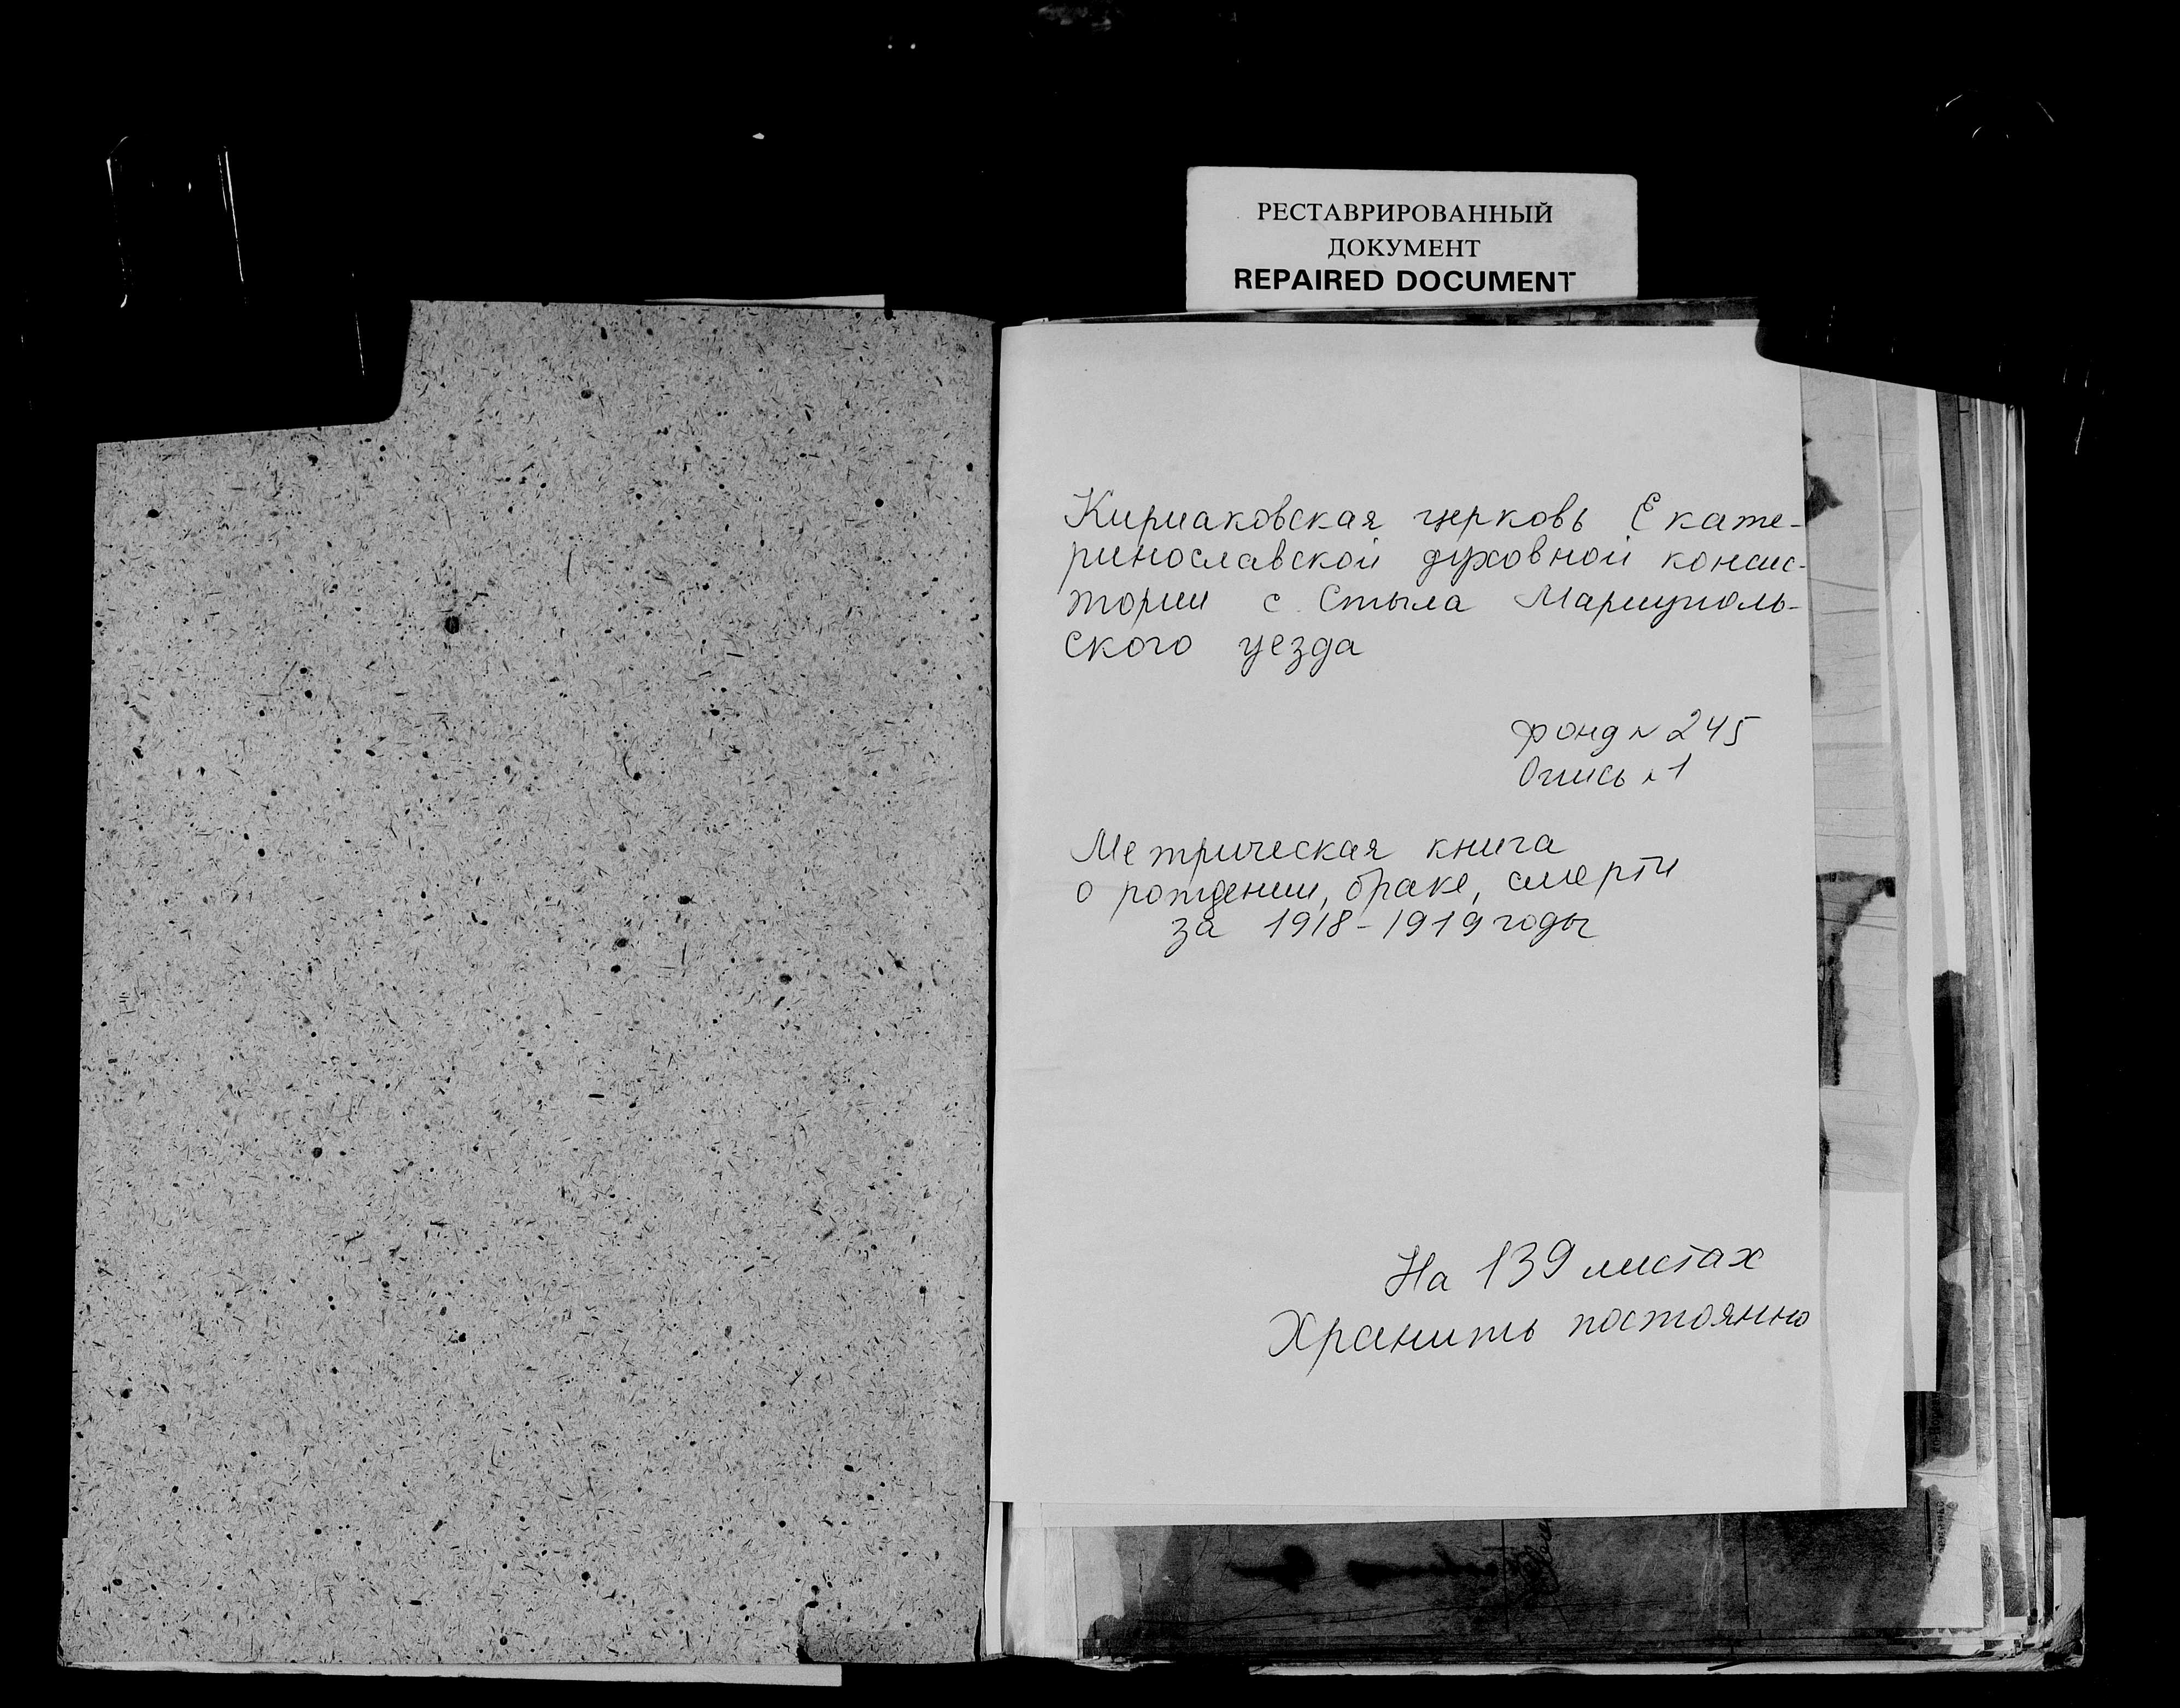 РЕСТАВРИРОВАННЫЙ
ДОКУМЕНТ
REPAIRED DOCUMENT
Кириаковская церковь Екате-
ринославской духовной консис-
тории с. Стыла Мариуполь-
ского уезда
фонд № 245
Опись № 1
Метрическая книга
о рождении, браке, смерти
за 1918-1919 годы
На 139 листах
Хранить постоянно